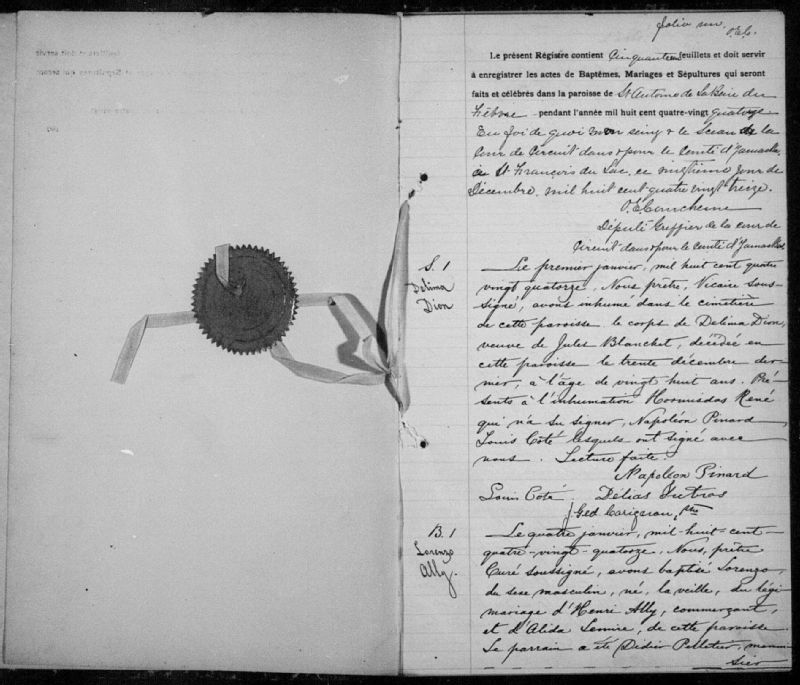 folio un.
O.E.C.
Le présent Régistre contient Cinquante feuillets et doit servir
à enregistrer les actes de Baptêmes, Mariages et Sépultures qui seront
faits et célébrés dans la paroisse de St Antoine de La Baie du
Febvre pendant l'année mil huit cent quatre-vingt quatorze
En foi de quoi mon seing & le Sceau de la
Cour de Circuit dans & pour le comté d'Yamaska,
à St François du Lac, ce vingtième jour de
Décembre, mil huit cent quatre vingt treize.
Député Greffier de la cour de
Circuit dans & pour le comté d'Yamaska
S. 1
Délima
Dion
Le premier janvier, mil huit cent quatre
vingt quatorze, Nous prêtre, Vicaire sous-
signé, avons inhumé dans le cimetière
de cette paroisse, le corps de Délima Dion,
veuve de Jules Blanchet, décédée en
cette paroisse le trente décembre der-
nier, à l'âge de vingt huit ans. Pré-
sents à l'inhumation Hormisdas René
qui n'a su signer, Napoléon Pinard,
Louis Coté lesquels ont signé avec
nous. Lecture faite.
Napoléon Pinard
Louis Coté. Délias Jutras
Ged. Carignan, ptre
B. 1
Lorenzo
Ally.
Le quatre janvier, mil-huit-cent-
quatre-vingt-quatorze, Nous, prêtre
Curé soussigné, avons baptisé Lorenzo,
du sexe masculin, né, la veille, du légi
mariage d'Henri Ally, commerçant,
et d'Alida Lemire, de cette paroisse.
Le parrain a été Didier Pelletier, menui
sier